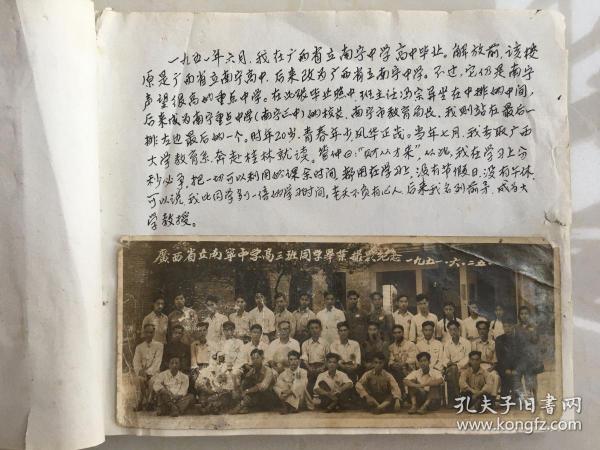 一九五一年六月,我在广西省立南宁中学高中毕业。解放前,该校
原是广西省立南宁高中,后来改为广西省立南宁中学。不过,它仍是南宁
声望很高的重点中学。在这张毕业照中,班主任冯宗异坐在中排的中间,
后来成为南宁重点中学(南宁三中)的校长、南宁市教育局长,我则站在最后一
排左边最后的一个。时年20岁,青春年少风华正茂。当年七月,我考取广西
大学教育系,奔赴桂林就读。管仲曰:“以来”从此,我在学习上分
秒必争,把一切可以利用的课余时间,都用在学习上,没有节假日,没有午休,
可以说,我比同学多一倍的学习时间。老天不负有心人,后来我名列前茅,成为大
学教授。
廣西省立南寧中学高三班同学畢業攝影紀念 一九五一·六·二五
孔夫子旧书网
www.kongfz.com